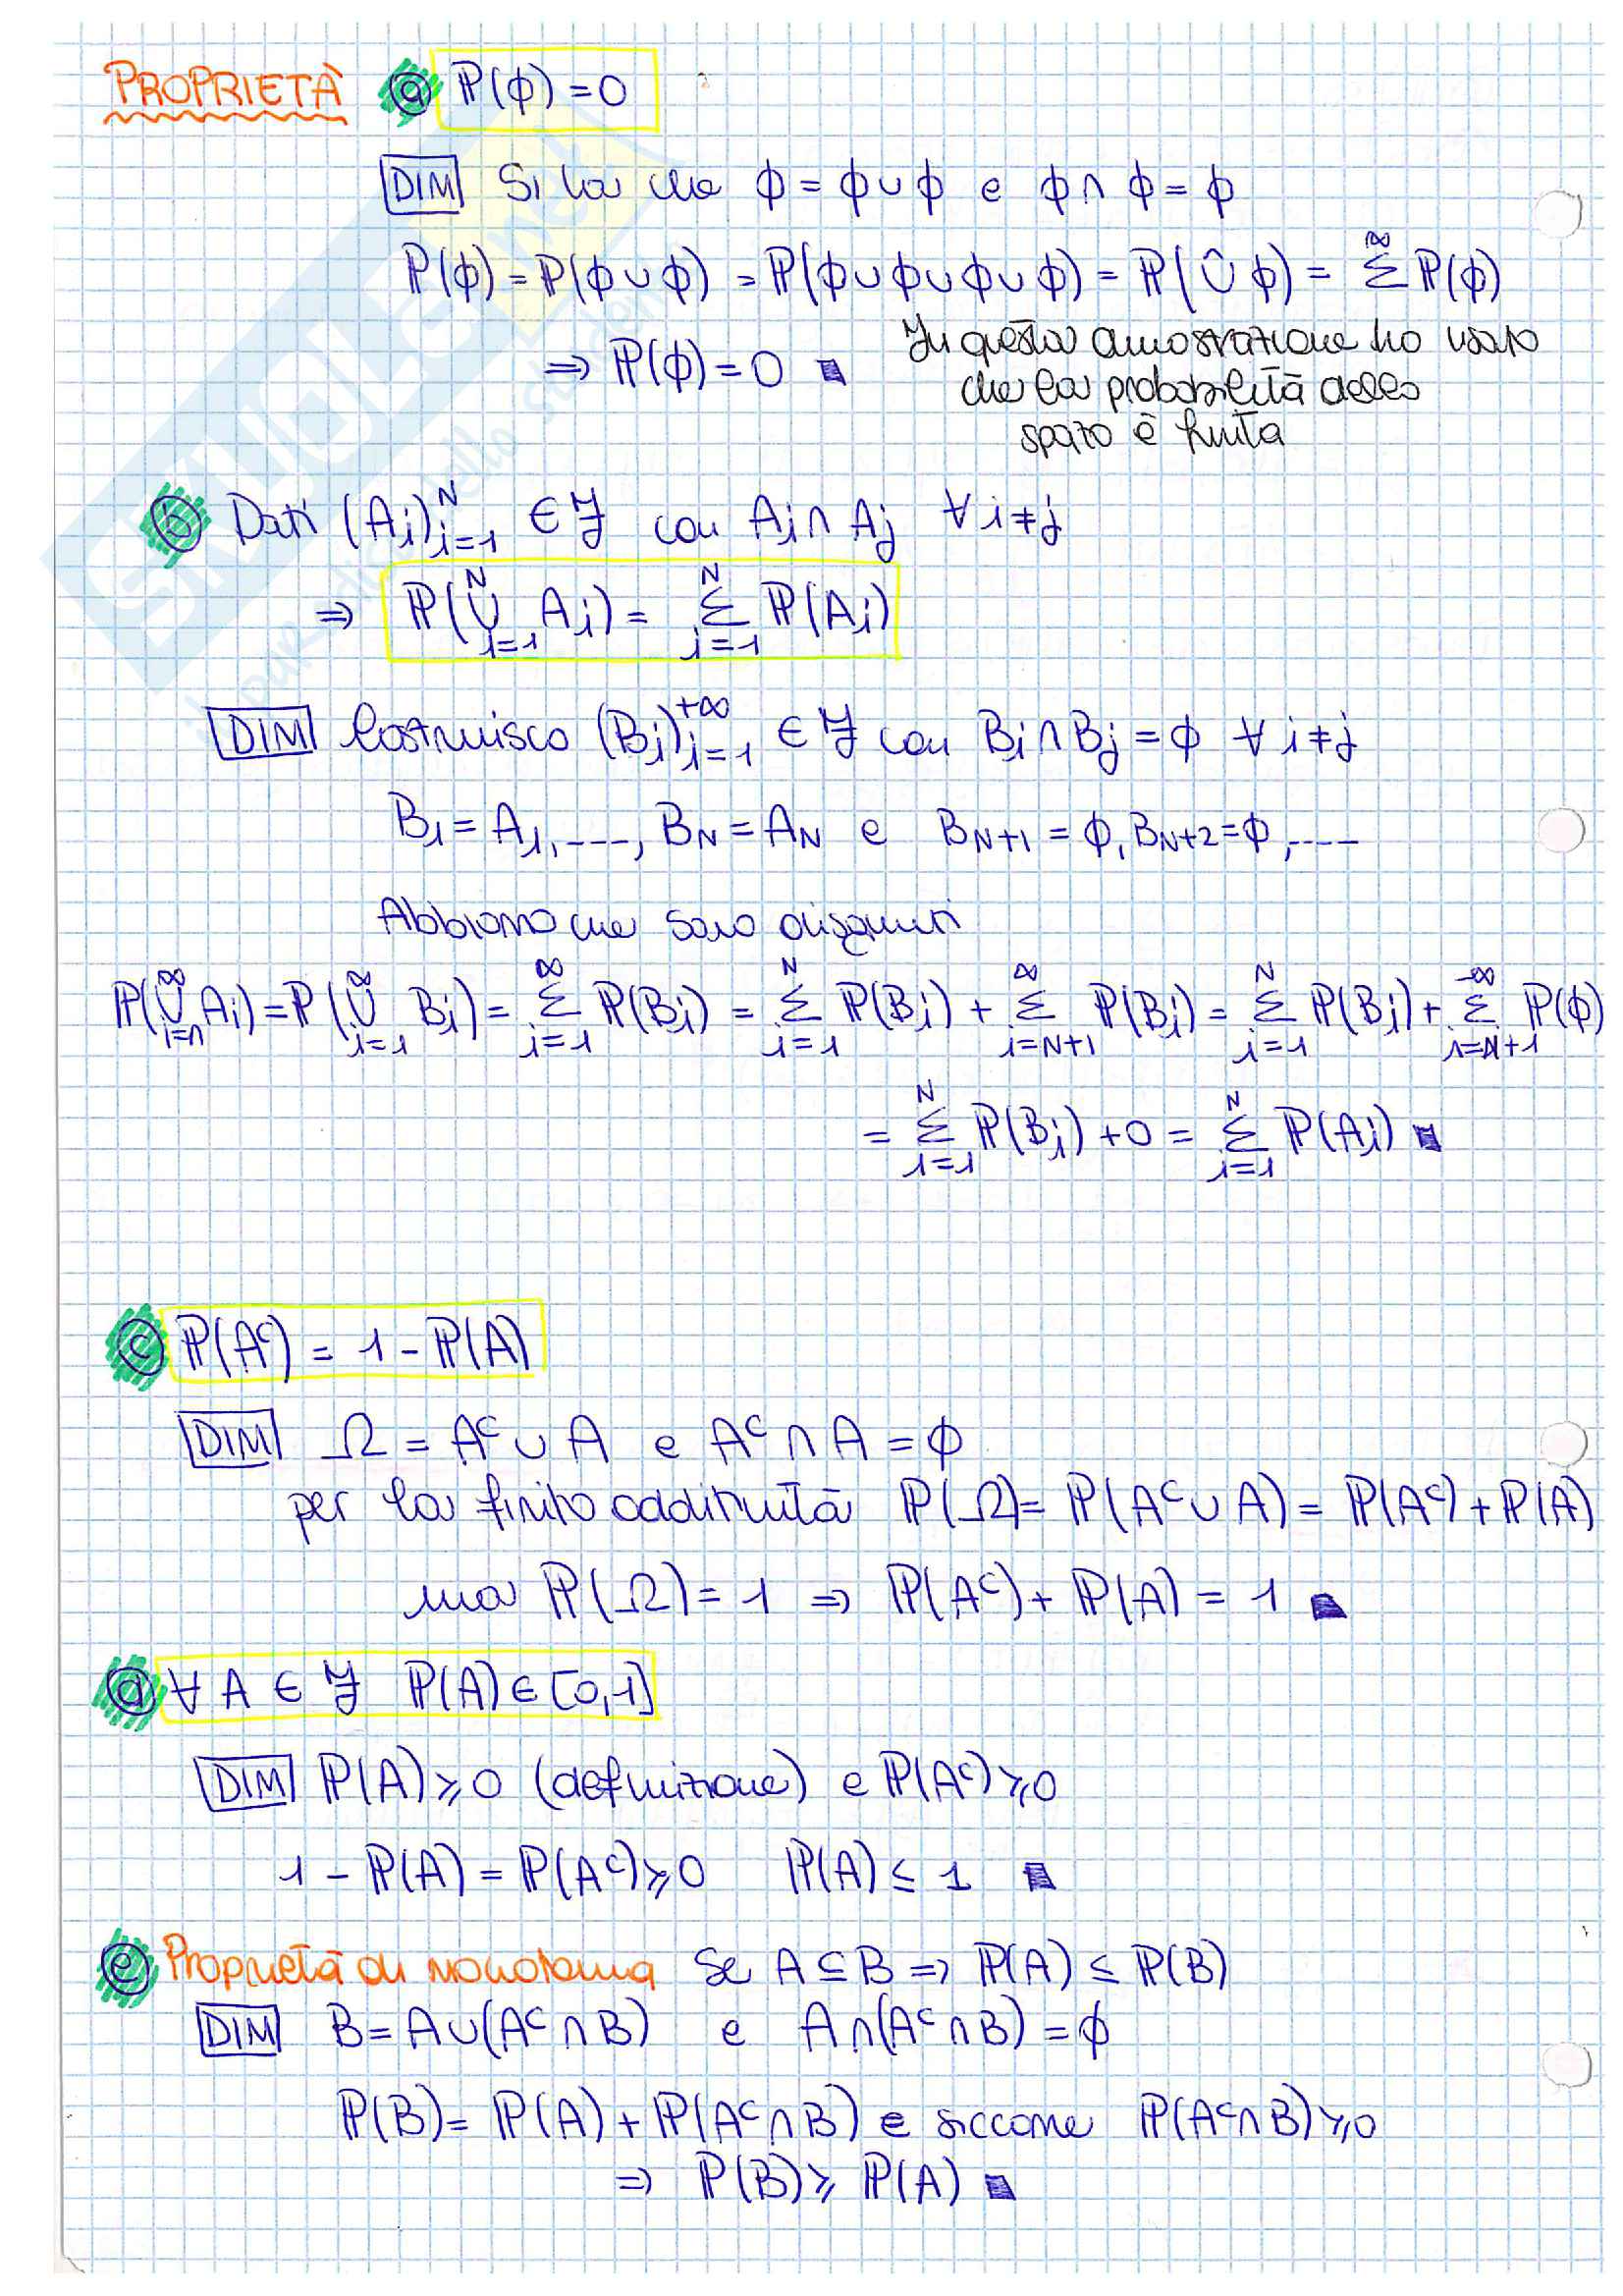 PROPRIETÀ ⓐ ℙ(ϕ) = 0
DIM Si ha che ϕ = ϕ ∪ ϕ e ϕ ∩ ϕ = ϕ
ℙ(ϕ) = ℙ(ϕ ∪ ϕ) = ℙ(ϕ ∪ ϕ ∪ ϕ ∪ ϕ) = ℙ(∪ ϕ) = Σ^∞ ℙ(ϕ)
⇒ ℙ(ϕ) = 0 ■
In questa dimostrazione ho usato
che la probabilità dello
spazio è finita
ⓑ Dati (Ai)_{i=1}^N ∈ ℱ con Ai ∩ Aj ∀ i ≠ j
⇒ ℙ(∪_{i=1}^N Ai) = Σ_{i=1}^N ℙ(Ai)
DIM Costruisco (Bi)_{i=1}^{+∞} ∈ ℱ con Bi ∩ Bj = ϕ ∀ i ≠ j
B1 = A1, ----, BN = AN e B_{N+1} = ϕ, B_{N+2} = ϕ, ----
Abbiamo che sono disgiunti
ℙ(∪_{i=n}^∞ Ai) = ℙ(∪_{i=1}^∞ Bi) = Σ_{i=1}^∞ ℙ(Bi) = Σ_{i=1}^N ℙ(Bi) + Σ_{i=N+1}^∞ ℙ(Bi) = Σ_{i=1}^N ℙ(Bi) + Σ_{i=N+1}^∞ ℙ(ϕ)
= Σ_{i=1}^N ℙ(Bi) + 0 = Σ_{i=1}^N ℙ(Ai) ■
ⓒ ℙ(Aᶜ) = 1 - ℙ(A)
DIM Ω = Aᶜ ∪ A e Aᶜ ∩ A = ϕ
per la finito additività ℙ(Ω) = ℙ(Aᶜ ∪ A) = ℙ(Aᶜ) + ℙ(A)
ma ℙ(Ω) = 1 ⇒ ℙ(Aᶜ) + ℙ(A) = 1 ■
ⓓ ∀ A ∈ ℱ ℙ(A) ∈ [0,1]
DIM ℙ(A) ≥ 0 (definizione) e ℙ(Aᶜ) ≥ 0
1 - ℙ(A) = ℙ(Aᶜ) ≥ 0 ℙ(A) ≤ 1 ■
ⓔ Proprietà di monotonia Se A ⊆ B ⇒ ℙ(A) ≤ ℙ(B)
DIM B = A ∪ (Aᶜ ∩ B) e A ∩ (Aᶜ ∩ B) = ϕ
ℙ(B) = ℙ(A) + ℙ(Aᶜ ∩ B) e siccome ℙ(Aᶜ ∩ B) ≥ 0
⇒ ℙ(B) ≥ ℙ(A) ■